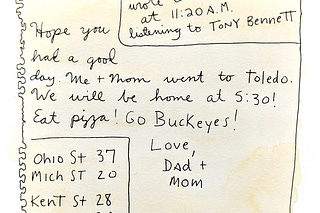 wrote
at 11:20 A.M.
listening to TONY BENNETT
Hope you
had a good
day. Me + Mom went to Toledo.
We will be home at 5:30!
Eat pizza! Go Buckeyes!
Love,
DAD +
MOM
OHIO St 37
MICH ST 20
KENT St 28